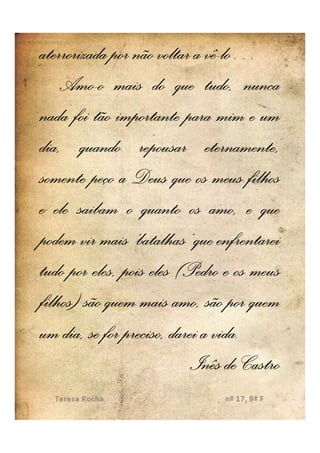 aterrorizada por não voltar a vê-lo . . .
Amo-o mais do que tudo, nunca
nada foi tão importante para mim e um
dia, quando repousar eternamente,
somente peço a Deus que os meus filhos
e ele saibam o quanto os amo, e que
podem vir mais ‘batalhas’ que enfrentarei
tudo por eles, pois eles (Pedro e os meus
filhos) são quem mais amo, são por quem
um dia, se for preciso, darei a vida.
Inês de Castro
Teresa Rocha nº 17, 9º F